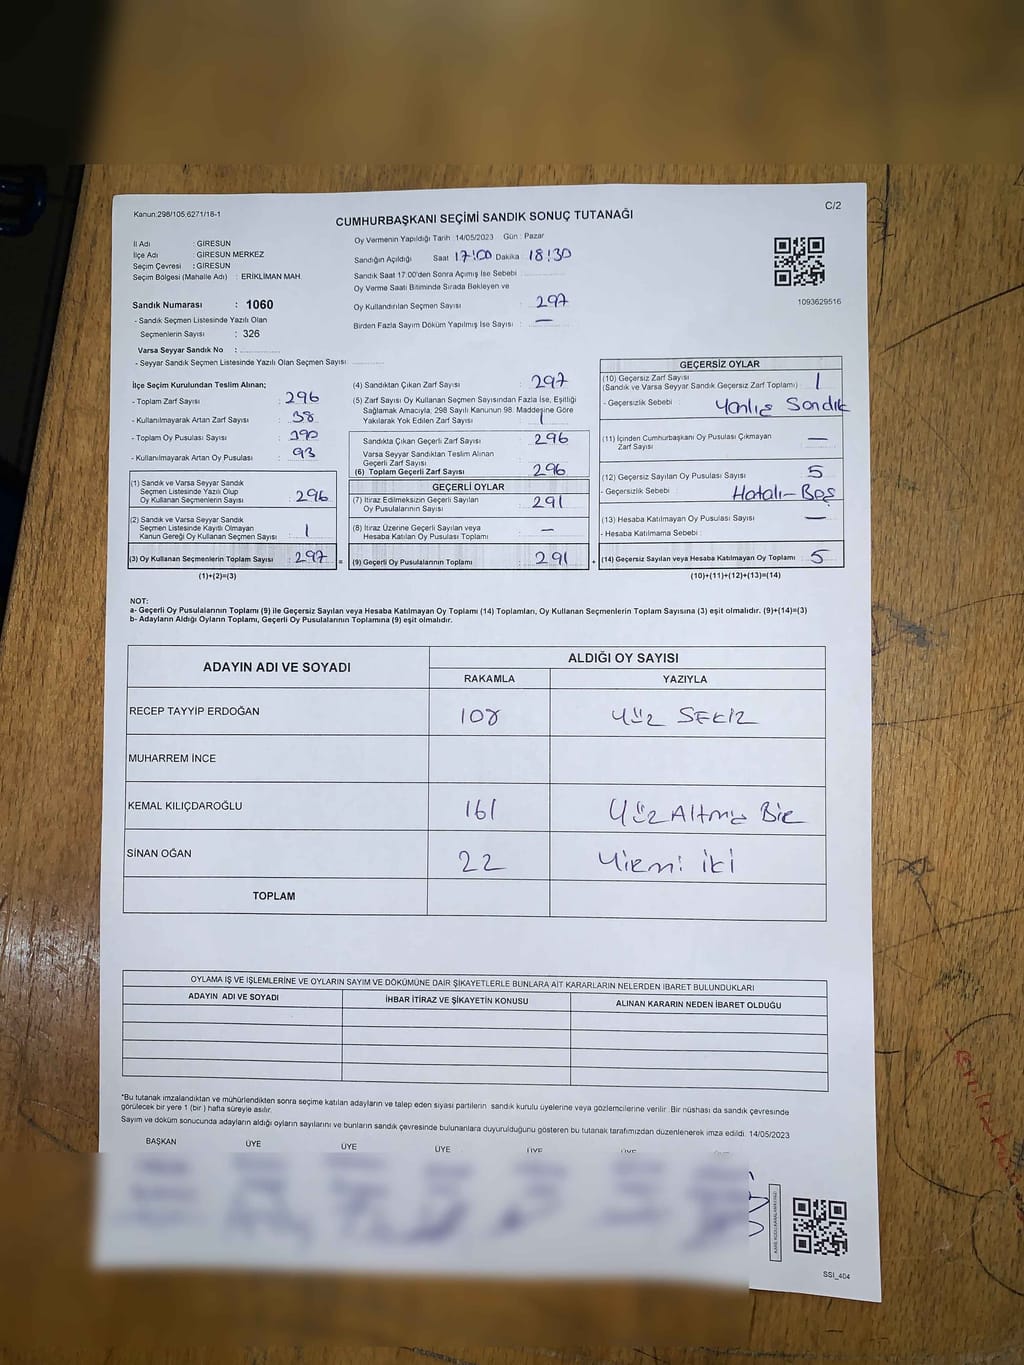 Kanun:298/105;6271/18-1
C/2
CUMHURBAŞKANI SEÇİMİ SANDIK SONUÇ TUTANAĞI
İl Adı : GİRESUN
İlçe Adı : GİRESUN MERKEZ
Seçim Çevresi : GİRESUN
Seçim Bölgesi (Mahalle Adı) : ERİKLİMAN MAH.
Sandık Numarası : 1060
- Sandık Seçmen Listesinde Yazılı Olan
Seçmenlerin Sayısı : 326
Varsa Seyyar Sandık No :
- Seyyar Sandık Seçmen Listesinde Yazılı Olan Seçmen Sayısı :
Oy Vermenin Yapıldığı Tarih : 14/05/2023 Gün : Pazar
Sandığın Açıldığı Saat 17:00 Dakika 18:30
Sandık Saat 17:00'den Sonra Açımış İse Sebebi :
Oy Verme Saati Bitiminde Sırada Bekleyen ve
Oy Kullandırılan Seçmen Sayısı : 297
Birden Fazla Sayım Döküm Yapılmış İse Sayısı : —
1093629516
İlçe Seçim Kurulundan Teslim Alınan;
- Toplam Zarf Sayısı : 296
- Kullanılmayarak Artan Zarf Sayısı : 38
- Toplam Oy Pusulası Sayısı :
- Kullanılmayarak Artan Oy Pusulası : 93
(1) Sandık ve Varsa Seyyar Sandık
Seçmen Listesinde Yazılı Olup
Oy Kullanan Seçmenlerin Sayısı : 296
(2) Sandık ve Varsa Seyyar Sandık
Seçmen Listesinde Kayıtlı Olmayan
Kanun Gereği Oy Kullanan Seçmen Sayısı : 1
(3) Oy Kullanan Seçmenlerin Toplam Sayısı : 297
(1)+(2)=(3)
(4) Sandıktan Çıkan Zarf Sayısı : 297
(5) Zarf Sayısı Oy Kullanan Seçmen Sayısından Fazla İse, Eşitliği
Sağlamak Amacıyla, 298 Sayılı Kanunun 98. Maddesine Göre
Yakılarak Yok Edilen Zarf Sayısı : 1
Sandıkta Çıkan Geçerli Zarf Sayısı : 296
Varsa Seyyar Sandıktan Teslim Alınan
Geçerli Zarf Sayısı
(6) Toplam Geçerli Zarf Sayısı : 296
GEÇERLİ OYLAR
(7) İtiraz Edilmeksizin Geçerli Sayılan
Oy Pusulalarının Sayısı : 291
(8) İtiraz Üzerine Geçerli Sayılan veya
Hesaba Katılan Oy Pusulası Toplamı : —
(9) Geçerli Oy Pusulalarının Toplamı : 291
GEÇERSİZ OYLAR
(10) Geçersiz Zarf Sayısı
(Sandık ve Varsa Seyyar Sandık Geçersiz Zarf Toplamı) : 1
- Geçersizlik Sebebi : Yanlış Sandık
(11) İçinden Cumhurbaşkanı Oy Pusulası Çıkmayan
Zarf Sayısı : —
(12) Geçersiz Sayılan Oy Pusulası Sayısı : 5
- Geçersizlik Sebebi : Hatalı-Boş
(13) Hesaba Katılmayan Oy Pusulası Sayısı : —
- Hesaba Katılmama Sebebi :
(14) Geçersiz Sayılan veya Hesaba Katılmayan Oy Toplamı : 5
(10)+(11)+(12)+(13)=(14)
NOT:
a- Geçerli Oy Pusulalarının Toplamı (9) ile Geçersiz Sayılan veya Hesaba Katılmayan Oy Toplamı (14) Toplamları, Oy Kullanan Seçmenlerin Toplam Sayısına (3) eşit olmalıdır. (9)+(14)=(3)
b- Adayların Aldığı Oyların Toplamı, Geçerli Oy Pusulalarının Toplamına (9) eşit olmalıdır.
ADAYIN ADI VE SOYADI
ALDIĞI OY SAYISI
RAKAMLA YAZIYLA
RECEP TAYYİP ERDOĞAN 108 YÜZ SEKİZ
MUHARREM İNCE
KEMAL KILIÇDAROĞLU 161 YÜZ Altmış Bir
SİNAN OĞAN 22 Yirmi iki
TOPLAM
OYLAMA İŞ VE İŞLEMLERİNE VE OYLARIN SAYIM VE DÖKÜMÜNE DAİR ŞİKAYETLERLE BUNLARA AİT KARARLARIN NELERDEN İBARET BULUNDUKLARI
ADAYIN ADI VE SOYADI İHBAR İTİRAZ VE ŞİKAYETİN KONUSU ALINAN KARARIN NEDEN İBARET OLDUĞU
*Bu tutanak imzalandıktan ve mühürlendikten sonra seçime katılan adayların ve talep eden siyasi partilerin sandık kurulu üyelerine veya gözlemcilerine verilir. Bir nüshası da sandık çevresinde
görülecek bir yere 1 (bir) hafta süreyle asılır.
Sayım ve döküm sonucunda adayların aldığı oyların sayılarını ve bunların sandık çevresinde bulunanlara duyurulduğunu gösteren bu tutanak tarafımızdan düzenlenerek imza edildi. 14/05/2023
BAŞKAN ÜYE ÜYE ÜYE ÜYE ÜYE ÜYE
SSI_404